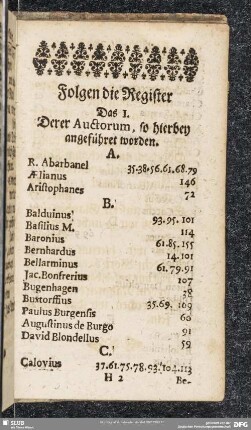 Folgen die Register
Das I.
Derer Auctorum, so hierbey
angeführet worden.
A.
R. Abarbanel 35.38.56.61.68.79
Ælianus 146
Aristophanes 72
B.
Balduinus 93.95.101
Basilius M. 114
Baronius 61.85.155
Bernhardus 14.101
Bellarminus 61.79.91
Jac. Bonfrerius 107
Bugenhagen 38
Buxtorffius 35.69.109
Paulus Burgensis 60
Augustinus de Burgo 91
David Blondellus 59
C.
Calovius 37.61.75.78.93.104.113
H 2 Be-
SLUB
DFG